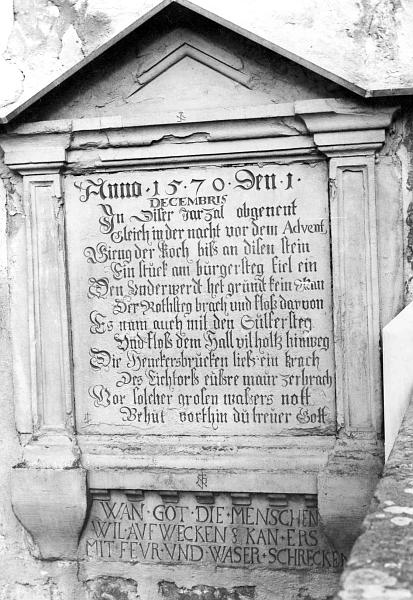 Anno · 15 · 70 · Den · 1 ·
DECEMBRIS
In Diser Jarzal obgenent
Gleich in der nacht vor dem Advent
Gieng der Koch biß an disen stein
Ein stück am bürgersteg fiel ein
Den Underwerdt het gründt kein Man
Der Rothsteg brach und floß darvon
Es nam auch mit den Sülfersteg
Und floß dem Hall vil holtz hinweg
Die Henckersbrucken ließ ein krach
Des Eichtorß eüsre maür zerbrach
Vor solcher grosen wasers nott
Behüt vorthin dü treuer Gott
WAN · GOT · DIE · MENSCHEN
WIL · AUFWECKEN & KAN · ERS
MIT FEUR · VND · WASER · SCHRECKEN